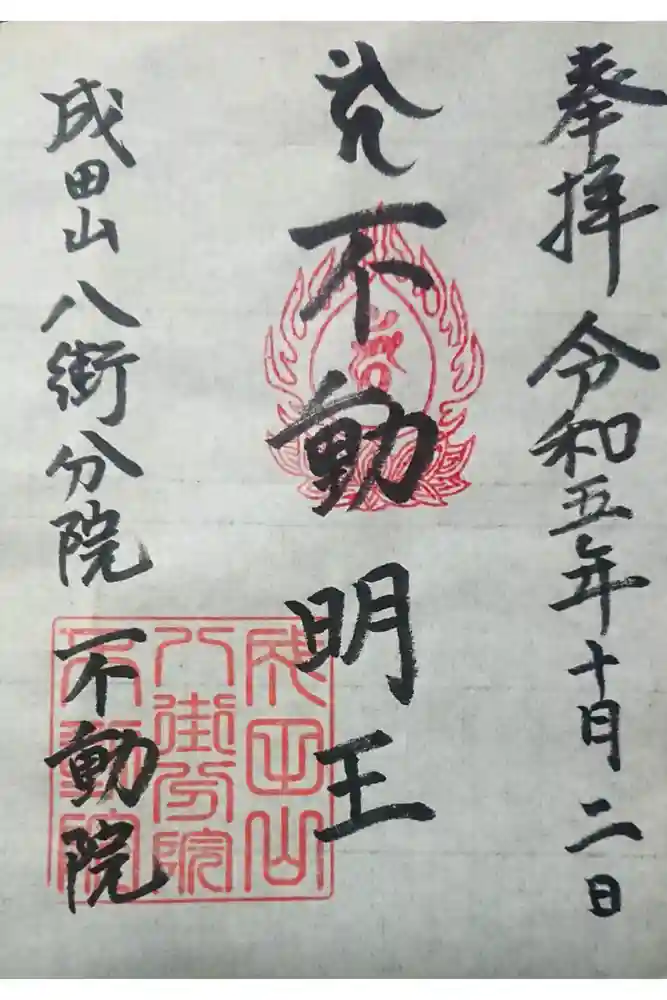 奉拝 令和五年十月二日
不動明王
成田山八街分院不動院
成田山
八街分院
不動院